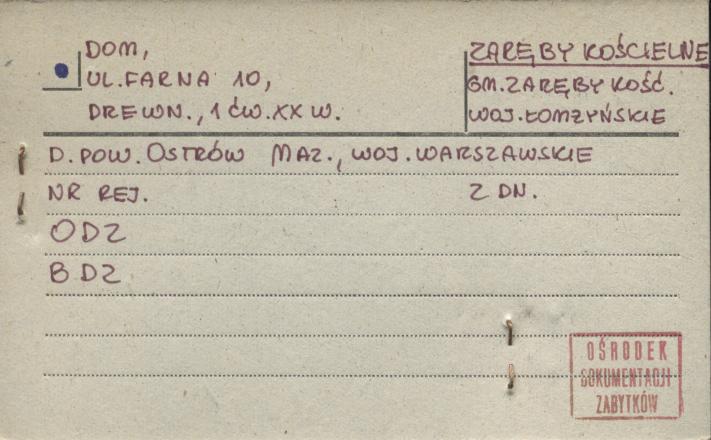 DOM,
UL. FARNA 10,
DREWN., 1 ĆW. XX W.
ZARĘBY KOŚCIELNE
GM. ZARĘBY KOŚĆ.
WOJ. ŁOMŻYŃSKIE
D. POW. OSTRÓW MAZ., WOJ. WARSZAWSKIE
NR REJ. Z DN.
ODZ
BDZ
OŚRODEK
DOKUMENTACJI
ZABYTKÓW